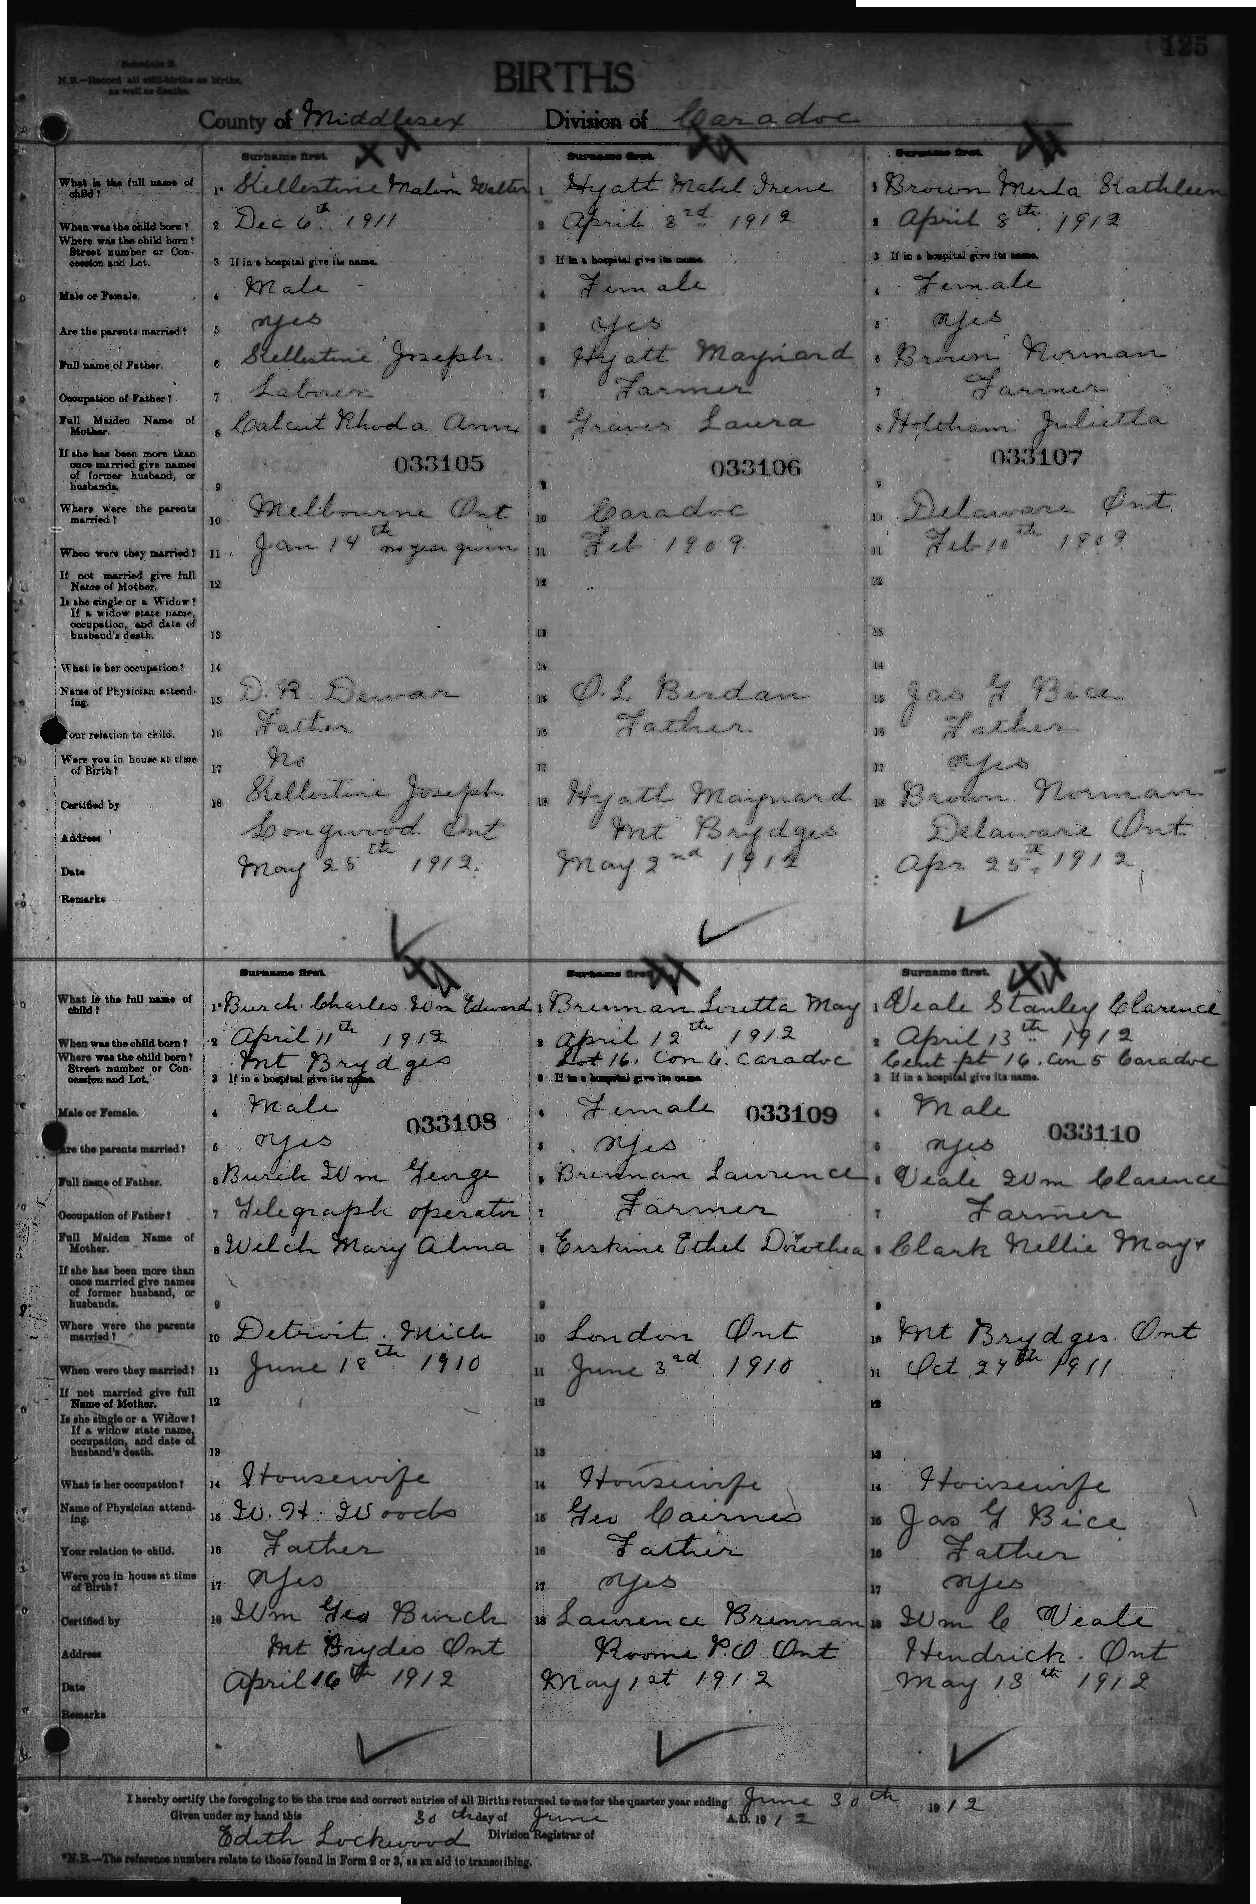 125
Schedule B.
N.B.—Record all still-births as births, as well as deaths.
BIRTHS
County of Middlesex Division of Caradoc
Surname first. Surname first. Surname first.
What is the full name of child? 1 Kellestine Walter 1 Hyatt Mabel Irene 1 Brown Merla Kathleen
When was the child born? 2 Dec 6th 1911 2 April 3rd 1912 2 April 8th 1912
Where was the child born? Street number or Concession and Lot. 3 If in a hospital give its name. 3 If in a hospital give its name. 3 If in a hospital give its name.
Male or Female. 4 Male 4 Female 4 Female
Are the parents married? 5 yes 5 yes 5 yes
Full name of Father. 6 Kellestine Joseph 6 Hyatt Maynard 6 Brown Norman
Occupation of Father? 7 Laborer 7 Farmer 7 Farmer
Full Maiden Name of Mother. 8 Calcut Rhoda Ann 8 Graves Laura 8 Holtham Julietta
If she has been more than once married give names of former husband, or husbands. 9 033105 9 033106 9 033107
Where were the parents married? 10 Melbourne Ont 10 Caradoc 10 Delaware Ont.
When were they married? 11 Jan 14th no year given 11 Feb 1909 11 Feb 10th 1909
If not married give full Name of Mother. 12 12 12
Is she single or a Widow? If a widow state name, occupation, and date of husband's death. 13 13 13
What is her occupation? 14 14 14
Name of Physician attending. 15 D. R. Dewar 15 O. L. Berdan 15 Jas G Bice
Your relation to child. 16 Father 16 Father 16 Father
Were you in house at time of Birth? 17 No 17 17 yes
Certified by 18 Kellestine Joseph 18 Hyatt Maynard 18 Brown Norman
Address Longwood Ont Mt Brydges Delaware Ont
Date May 25th 1912. May 2nd 1912 Apr 25th 1912
Remarks
Surname first. Surname first. Surname first.
What is the full name of child? 1 Burch Charles Wm Edward 1 Brennan Loretta May 1 Veale Stanley Clarence
When was the child born? 2 April 11th 1912 2 April 12th 1912 2 April 13th 1912
Where was the child born? Street number or Concession and Lot. Mt Brydges Lot 16. Con 6. Caradoc Cent pt 16. Con 5 Caradoc
3 If in a hospital give its name. 3 If in a hospital give its name. 3 If in a hospital give its name.
Male or Female. 4 Male 033108 4 Female 033109 4 Male 033110
Are the parents married? 5 yes 5 yes 5 yes
Full name of Father. 6 Burch Wm George 6 Brennan Laurence 6 Veale Wm Clarence
Occupation of Father? 7 Telegraph operator 7 Farmer 7 Farmer
Full Maiden Name of Mother. 8 Welch Mary Alma 8 Erskine Ethel Dorothea 8 Clark Nellie May
If she has been more than once married give names of former husband, or husbands. 9 9 9
Where were the parents married? 10 Detroit. Mich 10 London Ont 10 Mt Brydges. Ont
When were they married? 11 June 18th 1910 11 June 3rd 1910 11 Oct 24th 1911
If not married give full Name of Mother. 12 12 12
Is she single or a Widow? If a widow state name, occupation, and date of husband's death. 13 13 13
What is her occupation? 14 Housewife 14 Housewife 14 Housewife
Name of Physician attending. 15 W. H. Woods 15 Geo Cairnes 15 Jas G Bice
Your relation to child. 16 Father 16 Father 16 Father
Were you in house at time of Birth? 17 yes 17 yes 17 yes
Certified by 18 Wm Geo Burch 18 Laurence Brennan 18 Wm C Veale
Address Mt Brydes Ont Roome P.O Ont Hendrick. Ont
Date April 16th 1912 May 1st 1912 May 13th 1912
Remarks
I hereby certify the foregoing to be the true and correct entries of all Births returned to me for the quarter year ending June 30th 1912
Given under my hand this 30th day of June A.D. 1912
Edith Lockwood Division Registrar of
*N.B.—The reference numbers relate to those found in Form 2 or 3, as an aid to transcribing.